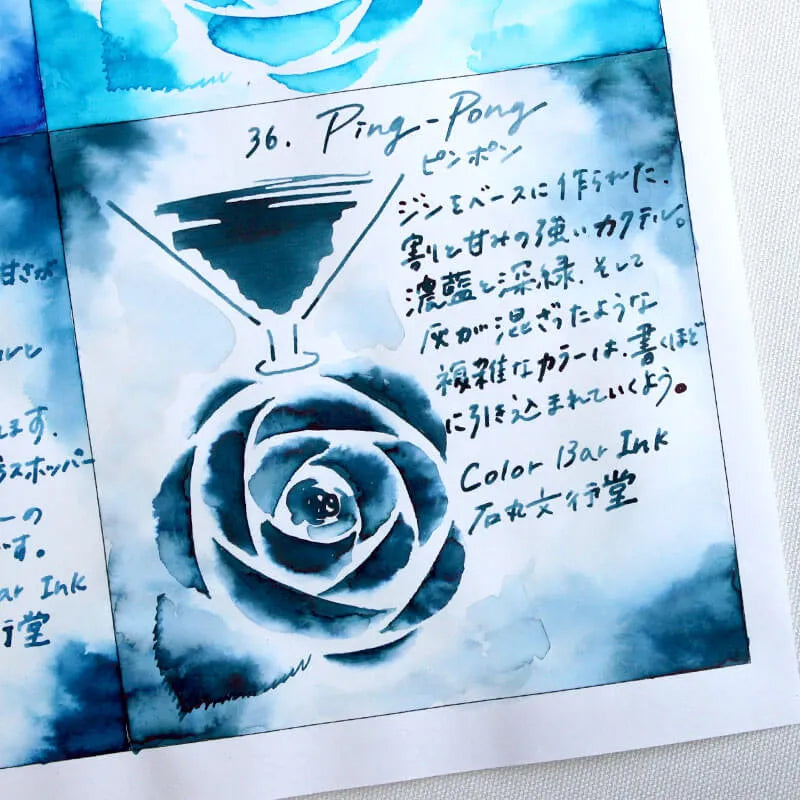 36. Ping-Pong
ピンポン
ジンをベースに作られた、
割と甘みの強いカクテル。
濃藍と深緑、そして
灰が混ざったような
複雑なカラーは、書くほど
に引き込まれていくよう。
Color Bar Ink
石丸文行堂
甘さが
ルと
ます。
ラスホッパー
ーの
です。
ar Ink
行堂